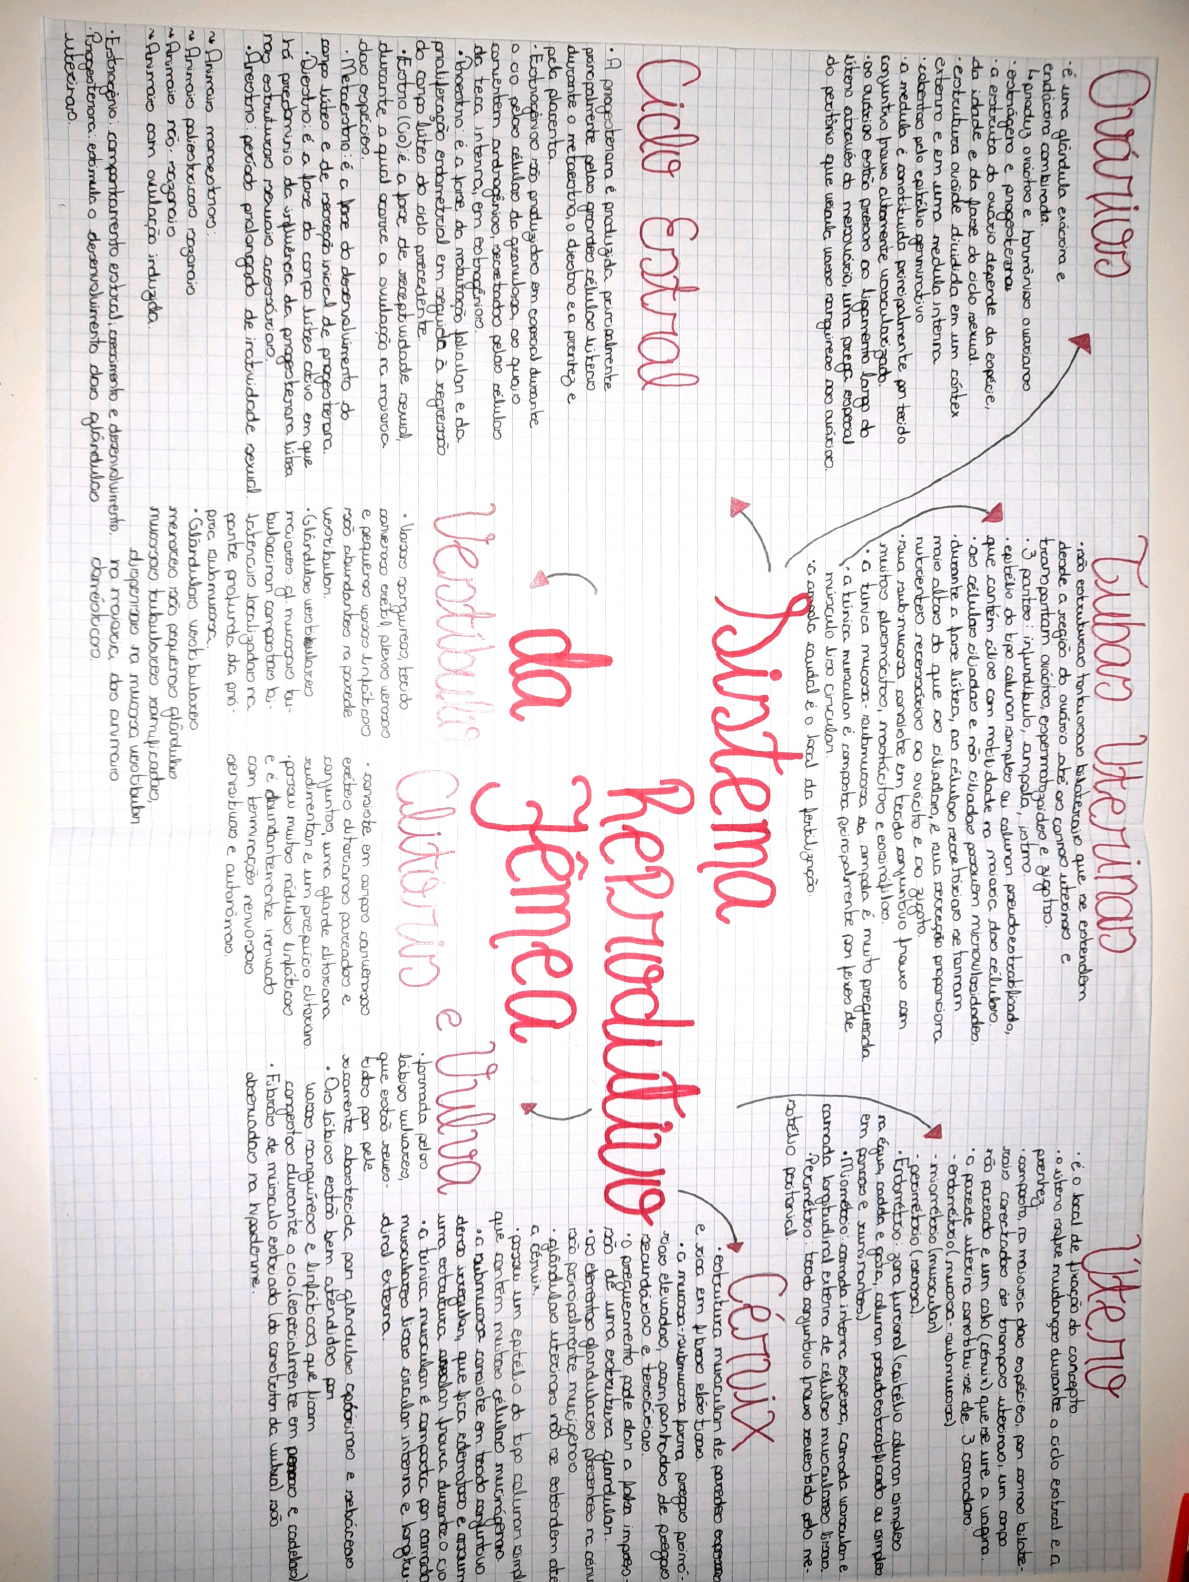 Sistema
Reprodutivo
da
Fêmea
Ovários
• é uma glândula exócrina e
endócrina combinada.
↳ produz ovócitos e hormônios ovarianos
• estrógeno e progesterona
• a estrutura do ovário depende da espécie,
da idade e da fase do ciclo sexual.
• estrutura ovóide dividida em um córtex
externo e em uma medula interna
• cobertas pelo epitélio germinativo
• a medula é constituída principalmente por tecido
conjuntivo frouxo altamente vascularizado.
• os ovários estão presos ao ligamento largo do
útero através do mesovário, uma prega especial
do peritônio que veicula vasos sanguíneos aos ovários.
Tubas Uterinas
• são estruturas tortuosas bilaterais que se estendem
desde a região do ovário até os cornos uterinos e
transportam ovócitos, espermatozóides e zigotos.
• 3 partes: infundíbulo, ampola, istmo.
• epitélio do tipo colunar simples ou colunar pseudoestratificado,
que contém cílios com motilidade na maioria das células.
• as células ciliadas e não ciliadas possuem microvilosidades.
• durante a fase lútea, as células secretoras se tornam
mais altas do que as ciliadas, e sua secreção proporciona
nutrientes necessários ao ovócito e ao zigoto.
• sua submucosa consiste em tecido conjuntivo frouxo com
muitos plasmócitos, mastócitos e eosinófilos.
• a túnica mucosa-submucosa da ampola é muito pregueada
• a túnica muscular é composta principalmente por feixes de
músculo liso circular.
• a ampola caudal é o local de fertilização
Útero
• é o local de fixação do concepto.
• o útero sofre mudanças durante o ciclo estral e a
prenhez.
• composto, na maioria das espécies, por cornos bilate-
rais conectados às trompas uterinas, um corpo
não pareado e um colo (cérvix) que se une a vagina.
• a parede uterina constitui-se de 3 camadas.
- endométrio (mucosa-submucosa)
- miométrio (muscular)
- perimétrio (serosa).
• Endométrio: zona funcional (epitélio colunar simples
na égua, cadela e gata, colunar pseudoestratificado ou simples
em porcas e ruminantes)
• Miométrio: camada interna espessa, camada vascular e
camada longitudinal externa de células musculares lisas.
• Perimétrio: tecido conjuntivo frouxo revestido pelo me-
sotélio peritonial.
Cérvix
• estrutura muscular de paredes espessas
e rica em fibras elásticas.
• a mucosa-submucosa forma pregas primá-
rias elevadas, acompanhadas de pregas
secundárias e terciárias.
• o pregueamento pode dar a falsa impres-
são de uma estrutura glandular.
• os elementos glandulares presentes na cérvix
são principalmente mucígenos.
• glândulas uterinas não se estendem até
a cérvix.
• possui um epitélio do tipo colunar simpl
que contém muitas células mucígenas.
• a submucosa consiste em tecido conjuntivo
denso irregular, que fica edematoso e assum
uma estrutura frouxa durante o cio
• a túnica muscular é composta por camada
musculares lisas circular interna e longitu-
dinal externa.
Ciclo Estral
• A progesterona é produzida principalmente
principalmente pelas grandes células luteais
durante o metaestro, o diestro e a prenhez e
pela placenta.
• Estrogênios são produzidos em especial durante
o cio pelas células da granulosa, as quais
convertem androgênios, secretados pelas células
da teca interna, em estrogênios.
• Proestro: é a fase de maturação folicular e da
proliferação endometrial em seguida à regressão
do corpo lúteo do ciclo precedente.
• Estro (Cio): é a fase de receptividade sexual,
durante a qual ocorre a ovulação na maioria
das espécies.
• Metaestro: é a fase do desenvolvimento do
corpo lúteo e de secreção inicial de progesterona.
• Diestro: é a fase do corpo lúteo ativo em que
há predomínio da influência da progesterona lútea
nas estruturas sexuais acessórias.
• Anestro: período prolongado de inatividade sexual.
↳ Animais monoestros:
↳ Animais poliestricos sazonais
↳ Animais não-sazonais
↳ Animais com ovulação induzida.
• Estrogênio: comportamento estral, crescimento e desenvolvimento.
• Progesterona: estimula o desenvolvimento das glândulas
uterinas.
Vestíbulo
• Vasos sanguíneos, tecido
cavernoso erétil, plexos venosos
e pequenos vasos linfáticos
são abundantes na parede
vestibular.
• Glândulas vestibulares
maiores: gl mucosas tu-
bulacinar compostas bi-
laterais localizadas na
parte profunda da pró-
pria submucosa.
• Glândulas vestibulares
menores são pequenas glândulas
mucosas tubulares ramificadas,
dispersas na mucosa vestibular
na maioria dos animais
domésticos.
Clitoris e Vulva
• consiste em corpos cavernosos
eréteis clitorianos pareados e
conjuntos, uma glande clitoriana
rudimentar e um prepúcio clitoriano.
• possui muitos nódulos linfáticos
e é abundantemente inervado
com terminações nervosas
sensitivas e autonômas.
• formada pelos
lábios vulvares,
que estão reves-
tidos por pele
ricamente abastecida por glândulas apócrinas e sebáceas
• Os lábios estão bem atendidos por
vasos sanguíneos e linfáticos, que ficam
congestos durante o cio. (especialmente em porcas e cadelas)
• Fibrão de músculo estriado (do constritor da vulva) são
observadas na hipoderme.